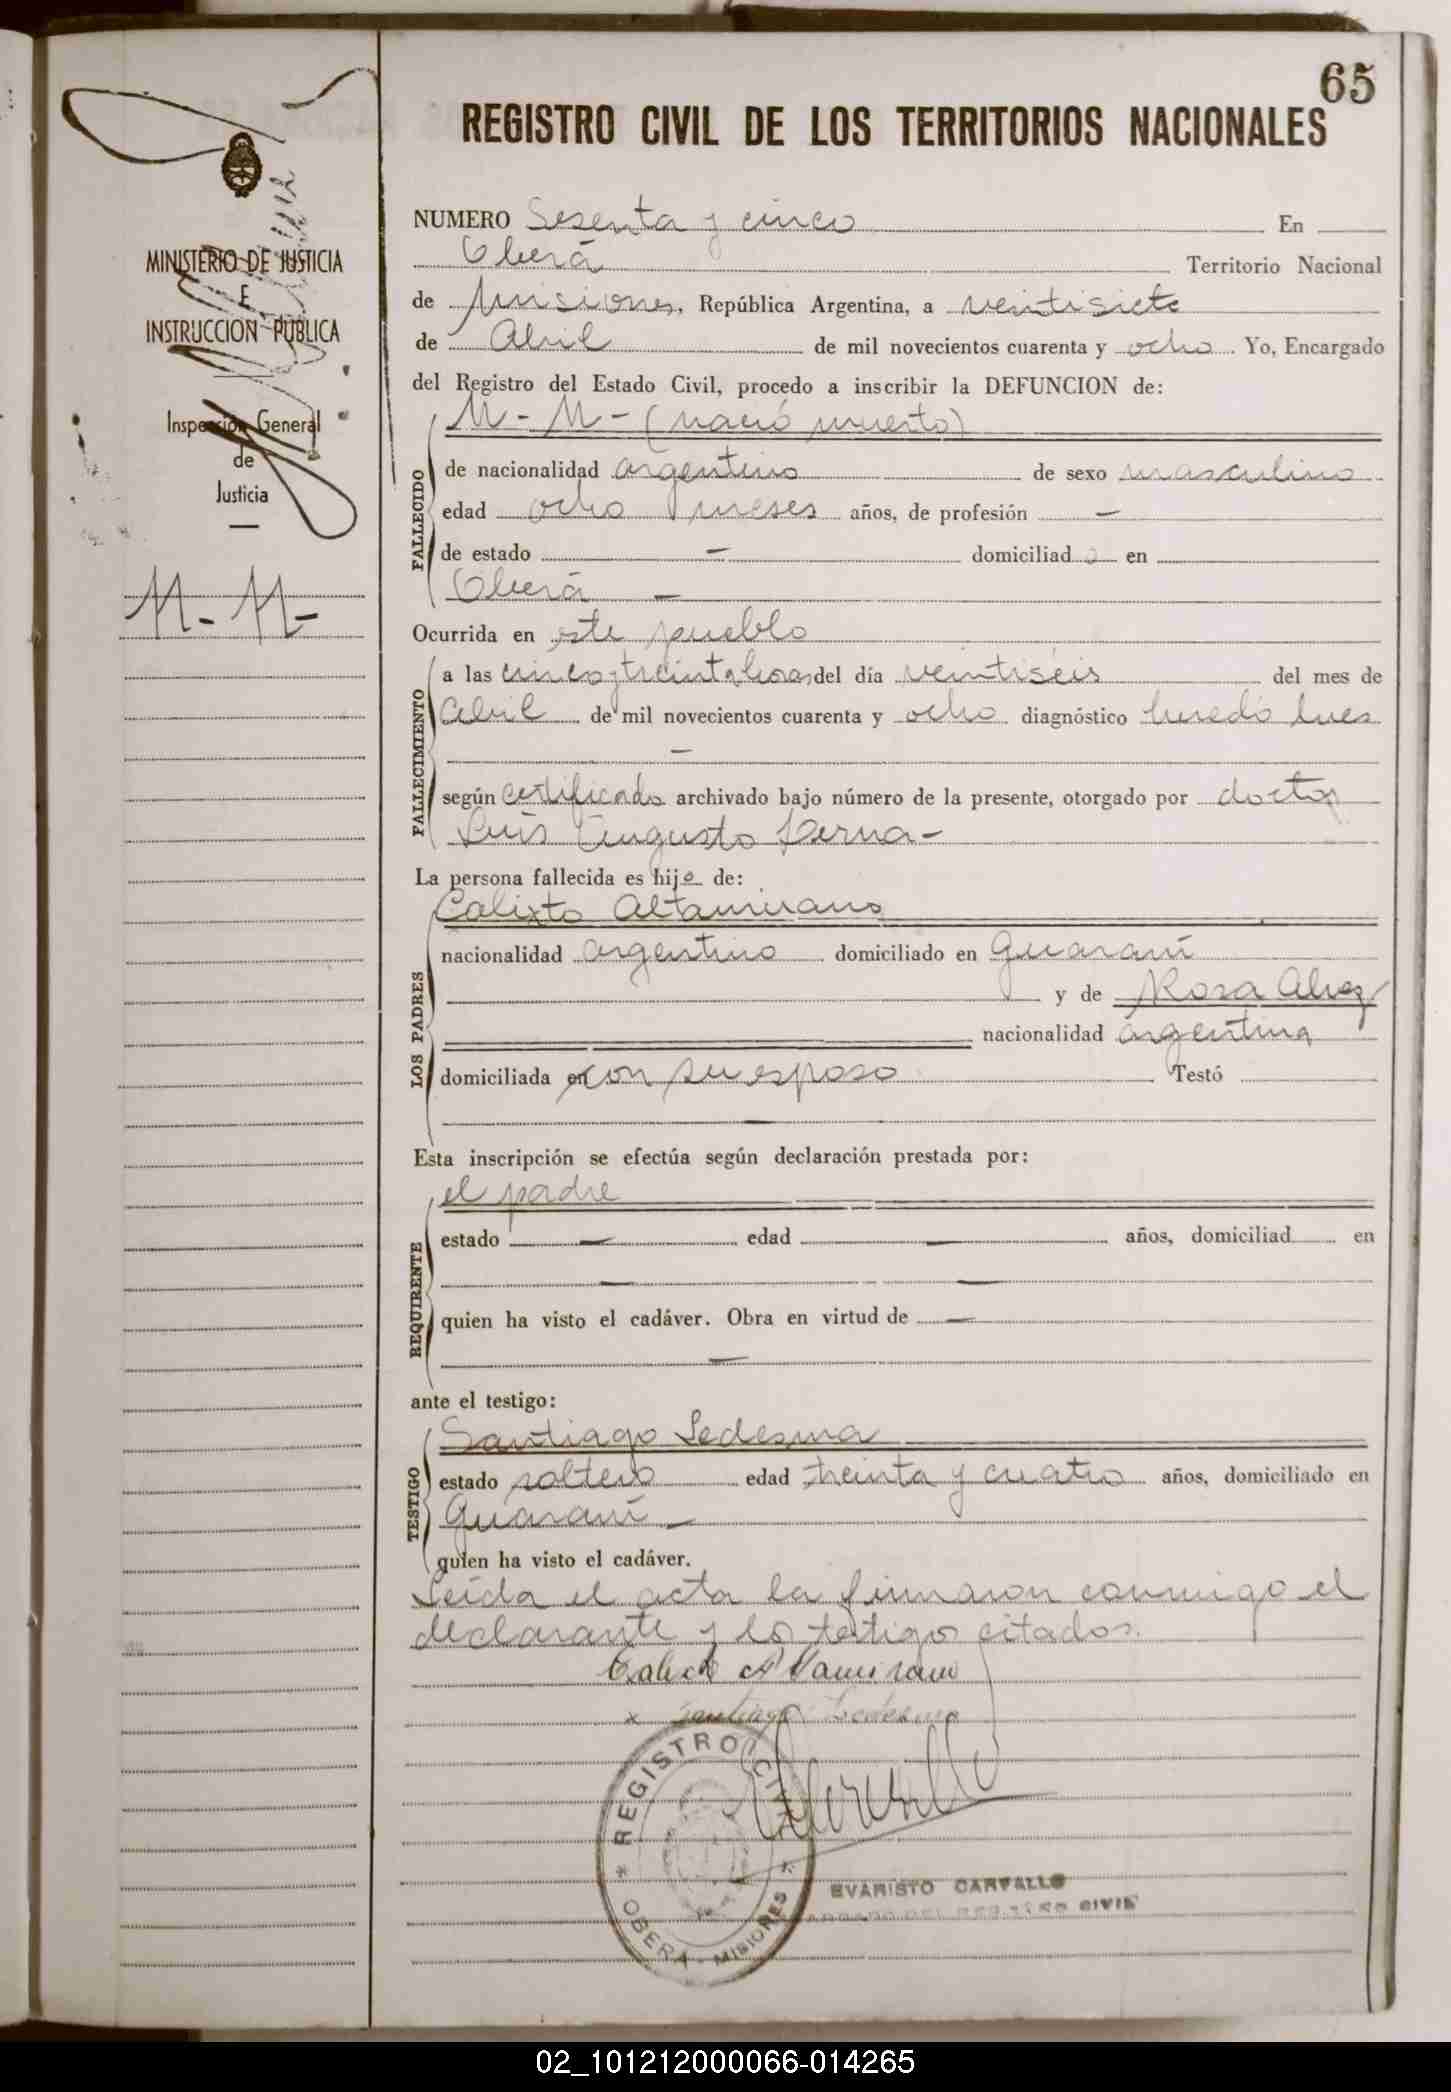 65
REGISTRO CIVIL DE LOS TERRITORIOS NACIONALES
MINISTERIO DE JUSTICIA
E
INSTRUCCION PUBLICA
Inspección General
de
Justicia
N-N-
NUMERO Sesenta y cinco En
Oberá Territorio Nacional
de Misiones, República Argentina, a veintisiete
de Abril de mil novecientos cuarenta y ocho. Yo, Encargado
del Registro del Estado Civil, procedo a inscribir la DEFUNCION de:
N-N-(nació muerto)
FALLECIDO
de nacionalidad argentino de sexo masculino
edad ocho meses años, de profesión -
de estado - domiciliado en
Oberá -
Ocurrida en este pueblo
FALLECIMIENTO
a las cinco y treinta horas del día veintiséis del mes de
Abril de mil novecientos cuarenta y ocho diagnóstico heredo lues
-
según certificado archivado bajo número de la presente, otorgado por doctor
Luis Augusto Derna-
La persona fallecida es hijo de:
Calixto Altamirano
LOS PADRES
nacionalidad argentino domiciliado en Guaraní
y de Rosa Alvez
nacionalidad argentina
domiciliada en con su esposo Testó
-
Esta inscripción se efectúa según declaración prestada por:
el padre
REQUIRENTE
estado - edad - años, domiciliad en
- -
quien ha visto el cadáver. Obra en virtud de -
-
ante el testigo:
Santiago Ledesma
TESTIGO
estado soltero edad treinta y cuatro años, domiciliado en
Guaraní -
quien ha visto el cadáver.
Leída el acta la firmaron conmigo el
declarante y los testigo citados.
Calixto Altamirano
x Santiago Ledesma
REGISTRO CIVIL
* OBERÁ - MISIONES *
EVARISTO CARVALLO
ENCARGADO DEL REGISTRO CIVIL
02_101212000066-014265